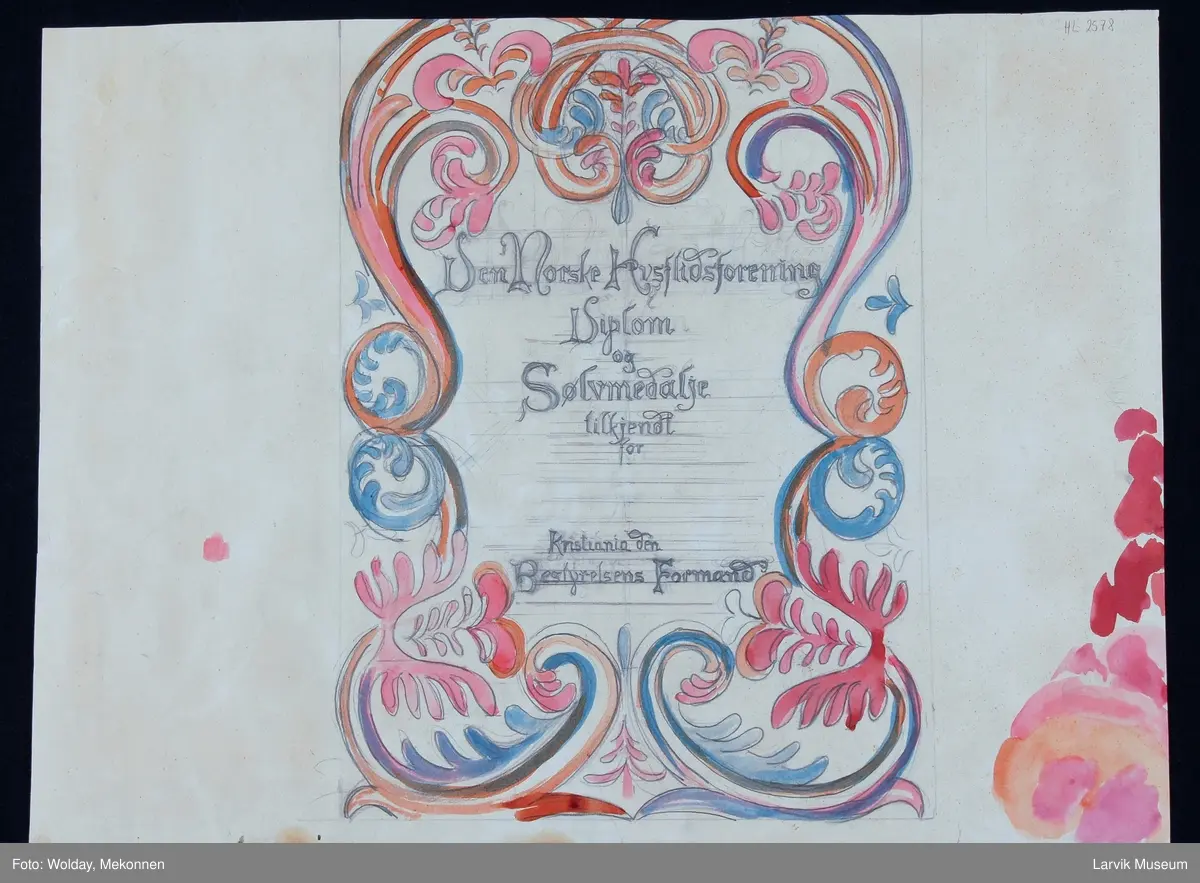 HL 2578
Den Norske Husflidsforening
Diplom
og
Sølvmedalje
tilkjendt
for
Kristiania den
Bestyrelsens Formand
Foto: Wolday, Mekonnen
Larvik Museum